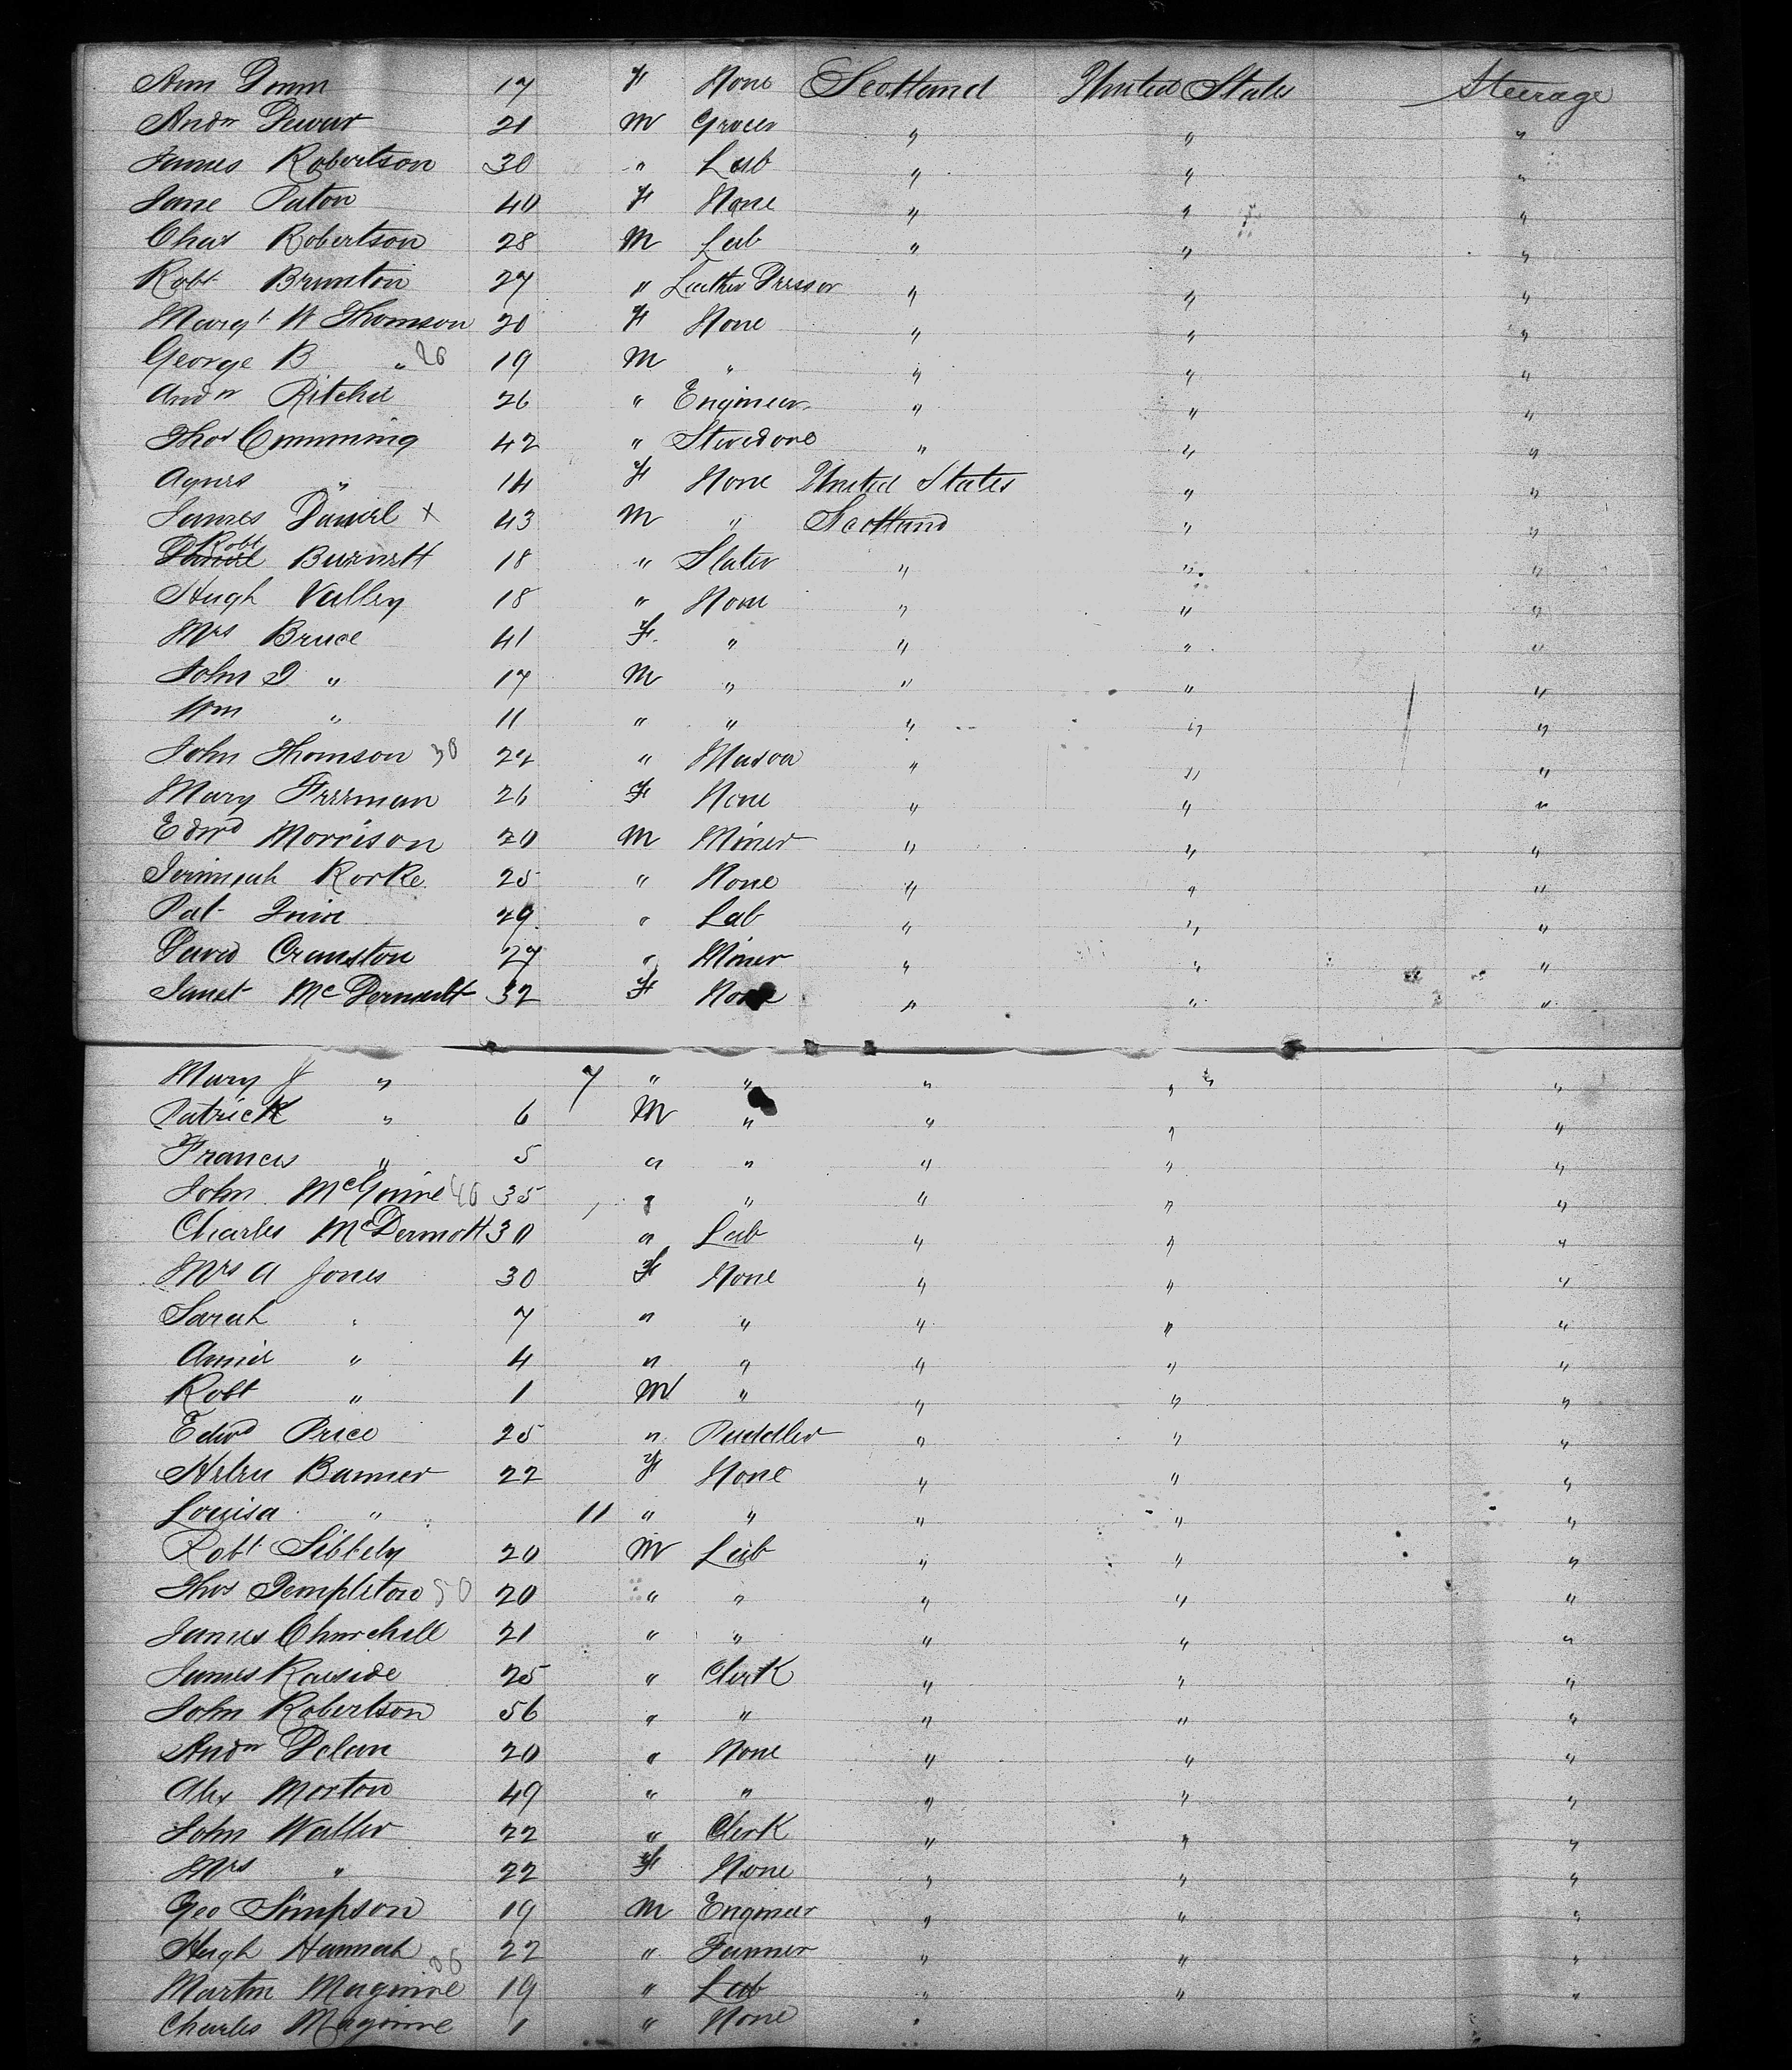 Ann Dunn 17 F None Scotland United States Steerage
Andw Dewar 21 M Grocer " " "
James Robertson 30 " Lab " " "
Jane Paton 40 F None " " "
Chas Robertson 28 M Lab " " "
Robt Brunton 27 " Leather Dresser " " "
Margt W Thomson 20 F None " " "
George B " 20 19 M " " " "
Andw Ritchie 26 " Engineer " " "
Thos Cumming 42 " Stevedore " " "
Agnes " 14 F None United States " "
James Daniel x 43 M " Scotland " "
Robt Burnett 18 " Slater " " "
Hugh Valley 18 " None " " "
Mrs Bruce 41 F " " " "
John D " 17 M " " " "
Wm " 11 " " " " "
John Thomson 30 22 " Mason " " "
Mary Freeman 26 F None " " "
Edwd Morrison 20 M Miner " " "
Jerimiah Rorke 25 " None " " "
Pat 29 " Lab " " "
David Cranston 27 " Miner " " "
Janet McDermott 32 F None " " "
Mary J " 7 " " " " "
Patrick " 6 M " " " "
Francis " 5 " " " " "
John McGuire 40 35 " " " " "
Charles McDermott 30 " Lab " " "
Mrs A Jones 30 F None " " "
Sarah " 7 " " " " "
Annie " 4 " " " " "
Robt " 1 M " " " "
Edwd Price 25 " Puddler " " "
Helen Banner 22 F None " " "
Louisa " 11 " " " " "
Robt Sibbely 20 M Lab " " "
Thos Templeton 50 20 " " " " "
James Churchill 21 " " " " "
James Rawside 25 " Clerk " " "
John Robertson 56 " " " " "
Andw Dolan 20 " None " " "
Alex Morton 49 " " " " "
John Waller 22 " Clerk " " "
Mrs " 22 F None " " "
Geo Simpson 19 M Engineer " " "
Hugh Hannah 22 " Farmer " " "
Martin Maguire 19 " Lab " " "
Charles Maguire 1 " None "